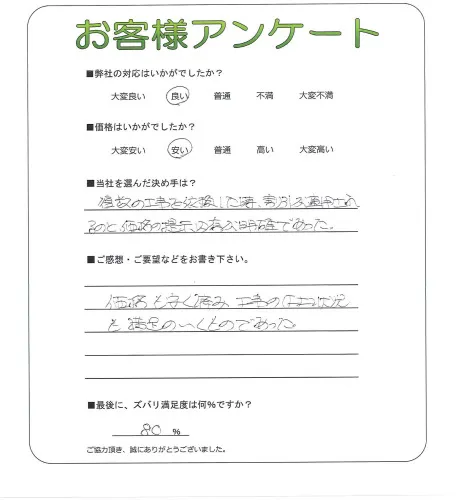 お客様アンケート
■弊社の対応はいかがでしたか？
大変良い 良い 普通 不満 大変不満
■価格はいかがでしたか？
大変安い 安い 普通 高い 大変高い
■当社を選んだ決め手は？
複数の工事を依頼した時、割引が適用され
るのと、価格の提示が有り明確であった。
■ご感想・ご要望などをお書き下さい。
価格も安く済み 工事の仕上状況
も 満足のいくものであった。
■最後に、ズバリ満足度は何％ですか？
80 ％
ご協力頂き、誠にありがとうございました。